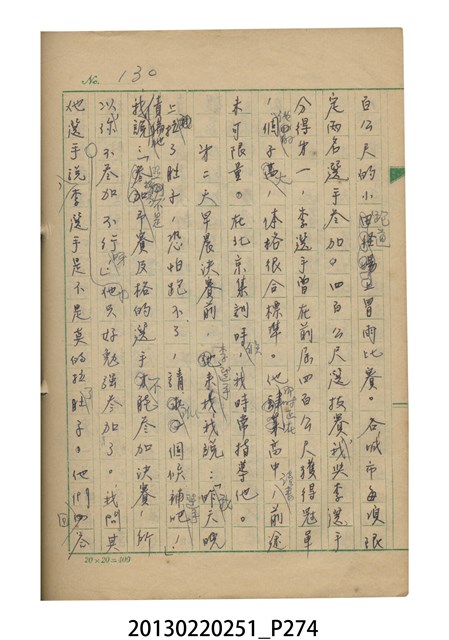 No. 130
百公尺的小跑道上冒雨比賽。各城市每項限
定兩名選手參加。四百公尺選拔賽我与李選手
分得才一,李選手曾在前屆四百公尺獲得冠軍
,個子高大,体格很合標準。他那時正在讀高中,前途
未可限量。在北京集訓時候,我時常指導他。
才二天早晨決賽前,李選手來找我說:「我昨天晚
上拉了肚子,恐怕跑不了,請找個候補吧!」
我說:「參加予賽及格的選手不能參加決賽,所
以你不參加不行」他只好勉強參加了。我問其
他選手說李選手是不是真的拉肚子了。他們回答
20×20=400
20130220251_P274